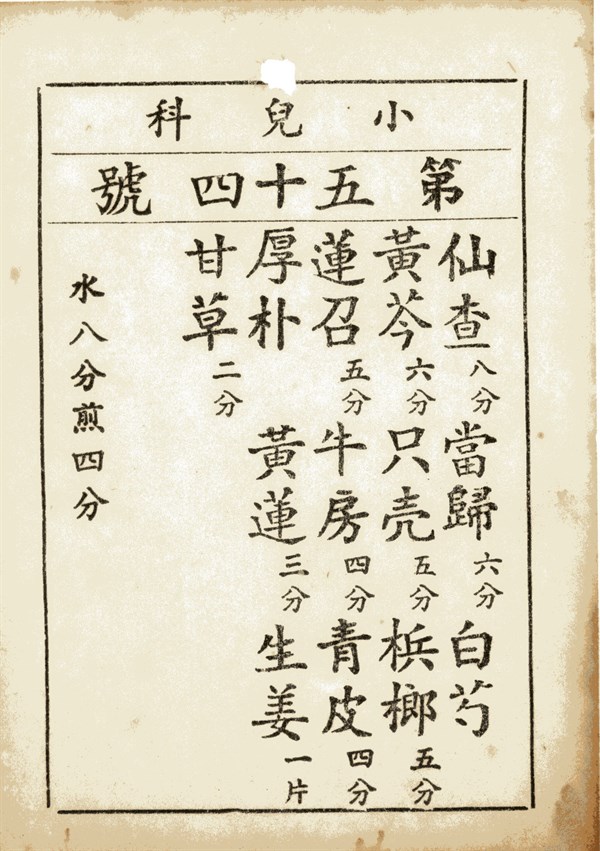 小兒科
第五十四號
仙查八分 當歸六分 白芍
黃芩六分 只壳五分 梹榔五分
蓮召五分 牛房四分 青皮四分
厚朴 黃蓮三分 生姜一片
甘草二分
水八分煎四分